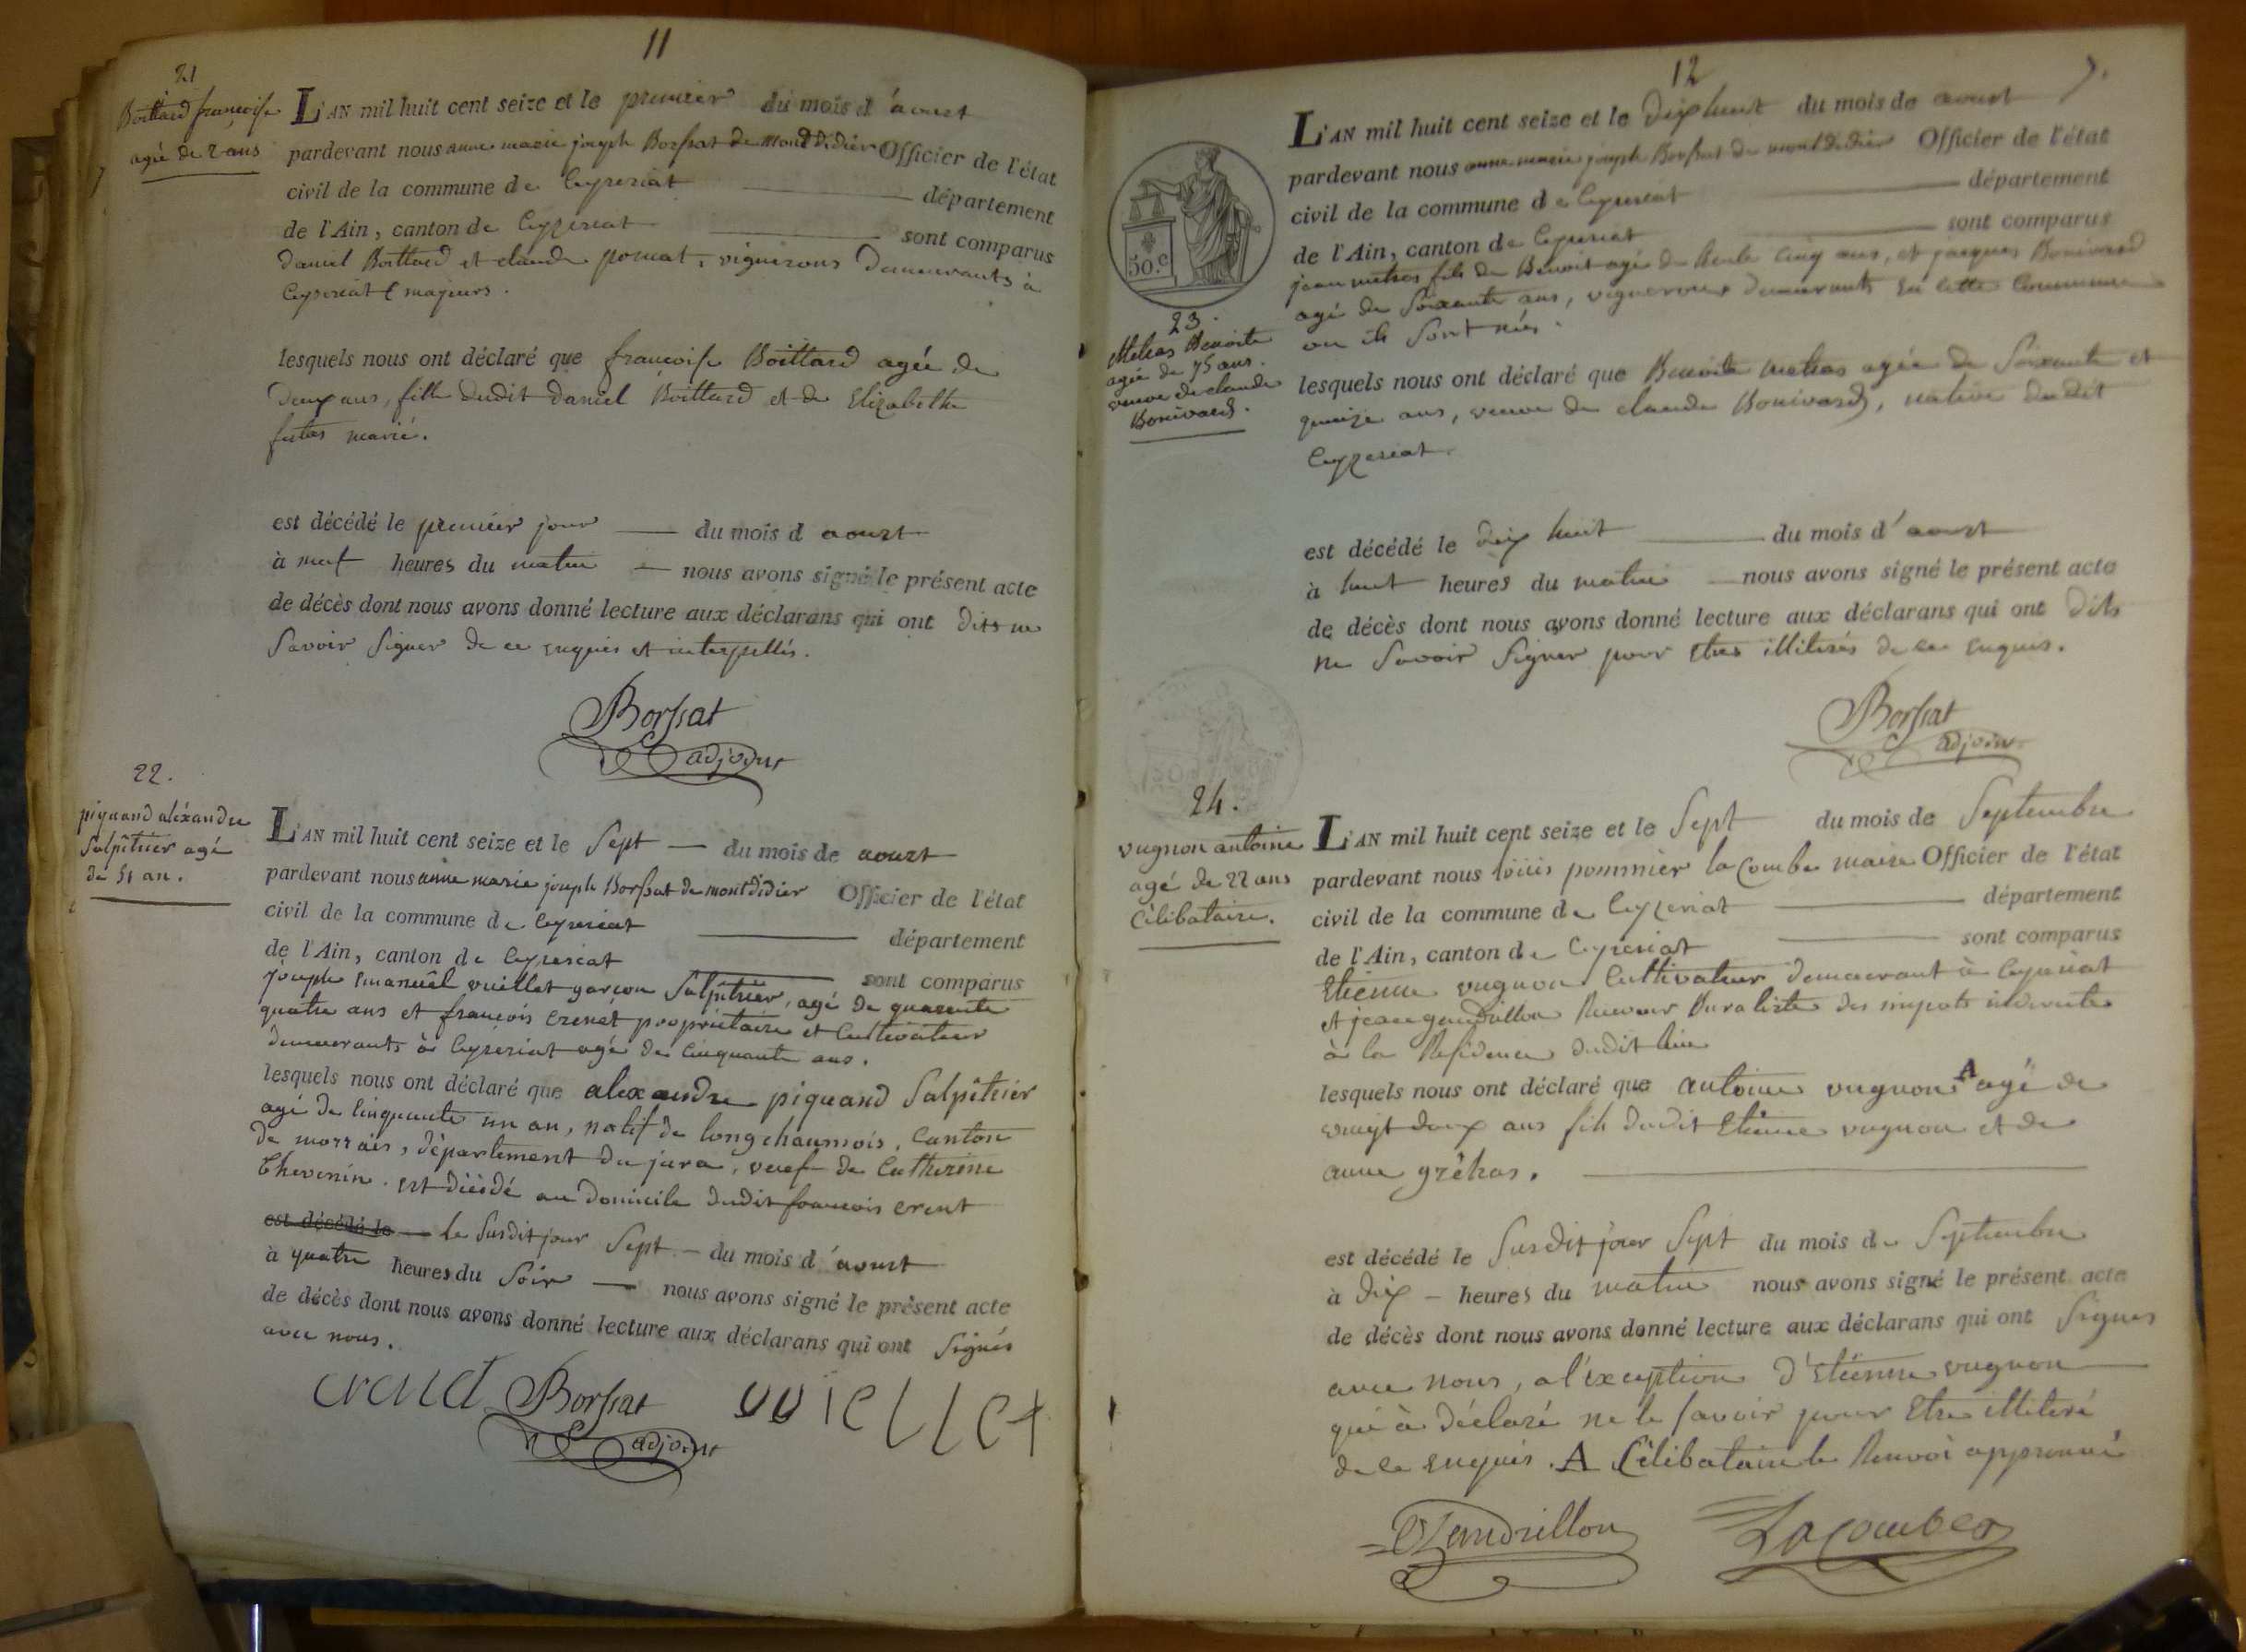 11
21
Boittard françoise
agée de 2 ans
L'AN mil huit cent seize et le premier du mois d'aoust
pardevant nous anne marie joseph Borssat de montdidier Officier de l'état
civil de la commune de Ceyzeriat département
de l'Ain, canton de Ceyzeriat sont comparus
daniel Boittard et claude pomat, vignerons demeurants à
Ceyzeriat majeurs.
lesquels nous ont déclaré que françoise Boittard agée de
deux ans, fille dudit daniel Boittard et de Elizabethe
futas marié.
est décédé le premier jour du mois d aoust
à neuf heures du matin nous avons signé le présent acte
de décès dont nous avons donné lecture aux déclarans qui ont dits ne
savoir signer de ce enquis et interpellés.
Borssat
adjoint
22.
piquand aléxandre
salpêtrier agé
de 51 an.
L'AN mil huit cent seize et le sept du mois de aoust
pardevant nous anne marie joseph Borssat de montdidier Officier de l'état
civil de la commune de Ceyzeriat département
de l'Ain, canton de Ceyzeriat sont comparus
joseph Emanuêl vuillet garçon salpêtrier, agé de quarente
quatre ans et françois crenet propriétaire et Cultivateur
demeurants à Ceyzeriat agé de Cinquante ans.
lesquels nous ont déclaré que alexandre piquand salpêtrier
agé de Cinquante un an, natif de longchaumois, Canton
de morrais, département du jura, veuf de Catherine
Thevenin. est décédé au domicile dudit françois crenet
est décédé le le susdit jour sept du mois d'aoust
à quatre heures du soir nous avons signé le présent acte
de décès dont nous avons donné lecture aux déclarans qui ont signés
avec nous.
Borssat
adjoint
vuiellet
12
23.
Metras Benoite
agée de 75 ans.
veuve de claude
Bonivard.
50.c
L'AN mil huit cent seize et le dix huit du mois de aoust
pardevant nous anne marie joseph Borssat de montdidier Officier de l'état
civil de la commune de Ceyzeriat département
de l'Ain, canton de Ceyzeriat sont comparus
jean metras fils de Benoit agé de trente cinq ans, et jacques Bonivard
agé de soixante ans, vignerons demeurants en cette Commune
ou ils sont nés.
lesquels nous ont déclaré que Benoite metras agée de soixante et
quinze ans, veuve de claude Bonivard, native dudit
Ceyzeriat.
est décédé le dix huit du mois d'aoust
à huit heures du matin nous avons signé le présent acte
de décès dont nous avons donné lecture aux déclarans qui ont dits
ne savoir signer pour etres illiterés de ce enquis.
Borssat
adjoint
24.
vugnon antoine
agé de 22 ans
Célibataire.
L'AN mil huit cent seize et le sept du mois de Septembre
pardevant nous loüis pommier lacombe maire Officier de l'état
civil de la commune de Ceyzeriat département
de l'Ain, canton de Ceyzeriat sont comparus
Etienne vugnon Cultivateur demeurant à Ceyzeriat
et jean gandrillon Receveur Buraliste des impots indirects
à la Résidence dudit lieu
lesquels nous ont déclaré que antoine vugnon A agé de
vingt deux ans fils dudit Etienne vugnon et de
anne grêhas.
est décédé le susdit jour sept du mois de Septembre
à dix heures du matin nous avons signé le présent acte
de décès dont nous avons donné lecture aux déclarans qui ont signés
avec nous, a l'éxception d'Etienne vugnon
qui à déclaré ne le savoir pour Etre illiteré
de ce enquis. A Célibataire le Renvoi approuvé
Gandrillon
Lacombe